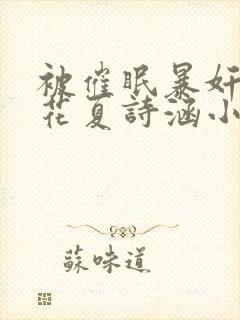 被催眠暴奸
花夏詩涵小
蘇味道